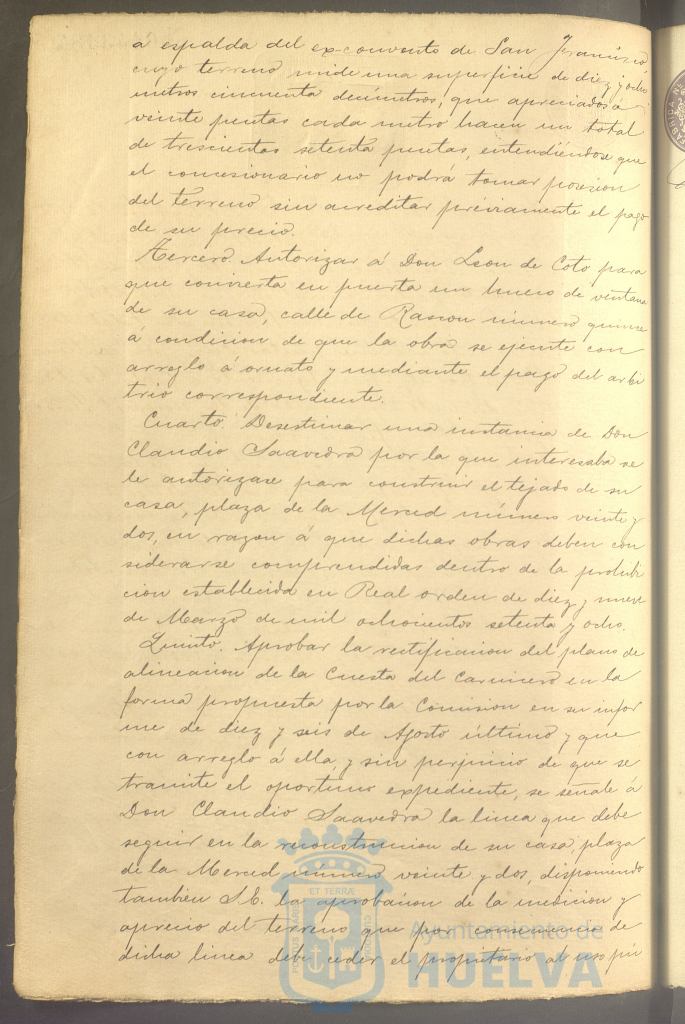 á espalda del ex-convento de San Francisco
cuyo terreno mide una superficie de diez y ocho
metros cincuenta decímetros, que apreciados á
veinte pesetas cada metro hacen un total
de trescientas setenta pesetas, entendiéndose que
el concesionario no podrá tomar posesion
del terreno sin acreditar préviamente el pago
de su precio.
Tercero. Autorizar á Don Leon de Coto para
que convierta en puerta un hueco de ventana
de su casa, calle de Rascon número quince
á condicion de que la obra se ejecute con
arreglo á ornato y mediante el pago del arbi
trio correspondiente.
Cuarto. Desestimar una instancia de Don
Claudio Saavedra por la que interesaba se
le autorizase para construir el tejado de su
casa, plaza de la Merced número veinte y
dos, en razon á que dichas obras deben con
siderarse comprendidas dentro de la prohibi
cion establecida en Real orden de diez y nueve
de Marzo de mil ochocientos setenta y ocho.
Quinto. Aprobar la rectificacion del plano de
alineacion de la Cuesta del Carnicero en la
forma propuesta por la Comision en su infor
me de diez y seis de Agosto último y que
con arreglo á ella, y sin perjuicio de que se
tramite el oportuno expediente, se señale á
Don Claudio Saavedra la linea que debe
seguir en la reconstruccion de su casa, plaza
de la Merced número veinte y dos, disponiendo
tambien S.E. la aprobacion de la medicion y
aprecio del terreno que por consecuencia de
dicha linea debe ceder el propietario al uso pú
Ayuntamiento de
HUELVA